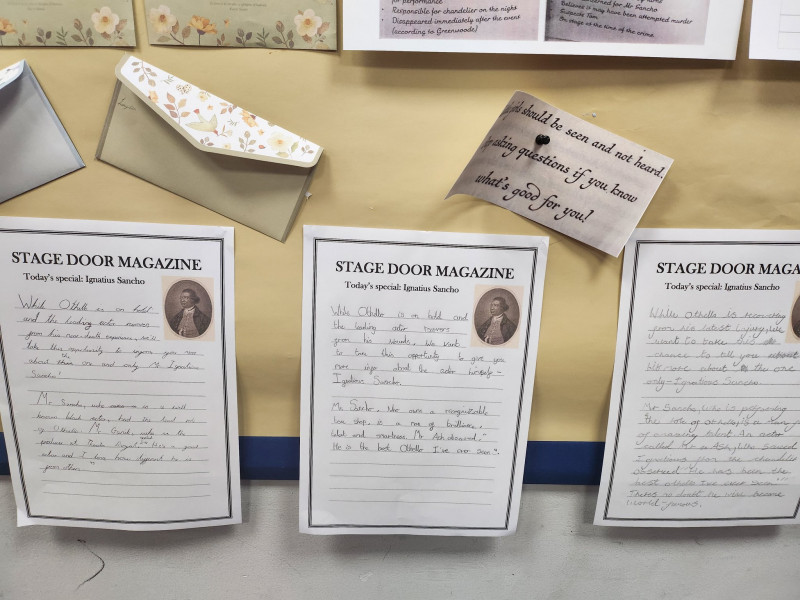 for performance
Responsible for chandelier on the night
Disappeared immediately after the event
(according to Greenwoode)
for Mr Sancho
Believes it may have been attempted murder
Suspects Tom
On stage at the time of the crime.
should be seen and not heard.
asking questions if you know
what's good for you!
STAGE DOOR MAGAZINE
Today's special: Ignatius Sancho
While Othello is on hold
and the leading actor recovers
from his near-death experience, we'll
take this opportunity to inform you more
about the one and only Mr Ignatius
Sancho.
Mr. Sancho, who is a well
known black actor had the lead role
of Othello. Mr. Garrick, who is the
producer at Theatre Royal, said "He's a great
actor and I love how different he is
from others."
STAGE DOOR MAGAZINE
Today's special: Ignatius Sancho
While Othello is on hold and
the leading actor recovers
from his wounds, we want
to take this opportunity to give you
more info about the actor himself -
Ignatius Sancho.
Mr Sancho, who owns a recognisable
stage, is a man of brilliance,
talent and smartness. Mr Ash observed, "
He is the best Othello I've ever seen".
STAGE DOOR MAGA
Today's special: Ignatius Sancho
While Othello is recovering
from his latest injury, we
want to take this
chance to tell you
more about the one
only - Ignatius Sancho.
Mr Sancho, who is performing
the role of Othello, is a man
of amazing talent. An actor
called Mr Ash, who saved
Ignatius from the chandelier
observed "He has been the
best Othello I've ever seen"
There's no doubt he will become
world-famous.